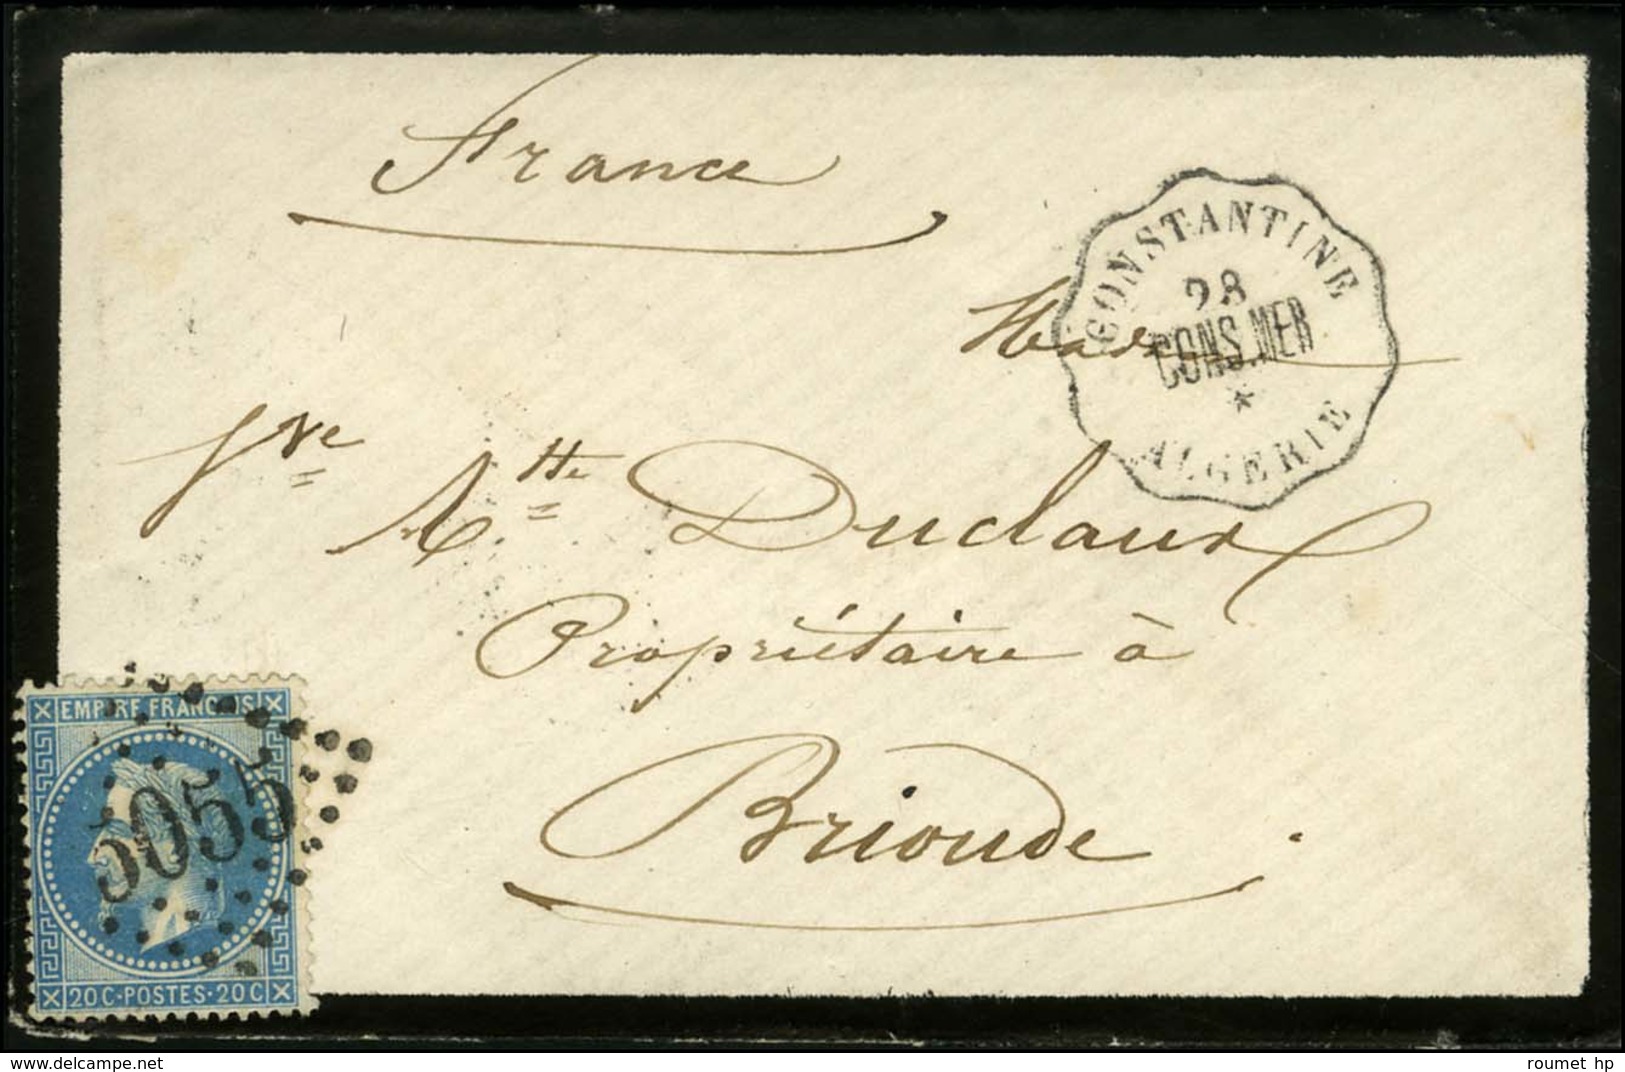 France
CONSTANTINE
28
CONS.MER
*
ALGERIE
Made
Vve
Duclaux
Propriétaire à
Brioude.
EMPIRE FRANÇAIS
5055
20 C·POSTES·20 C
delcampe.net
roumet hp